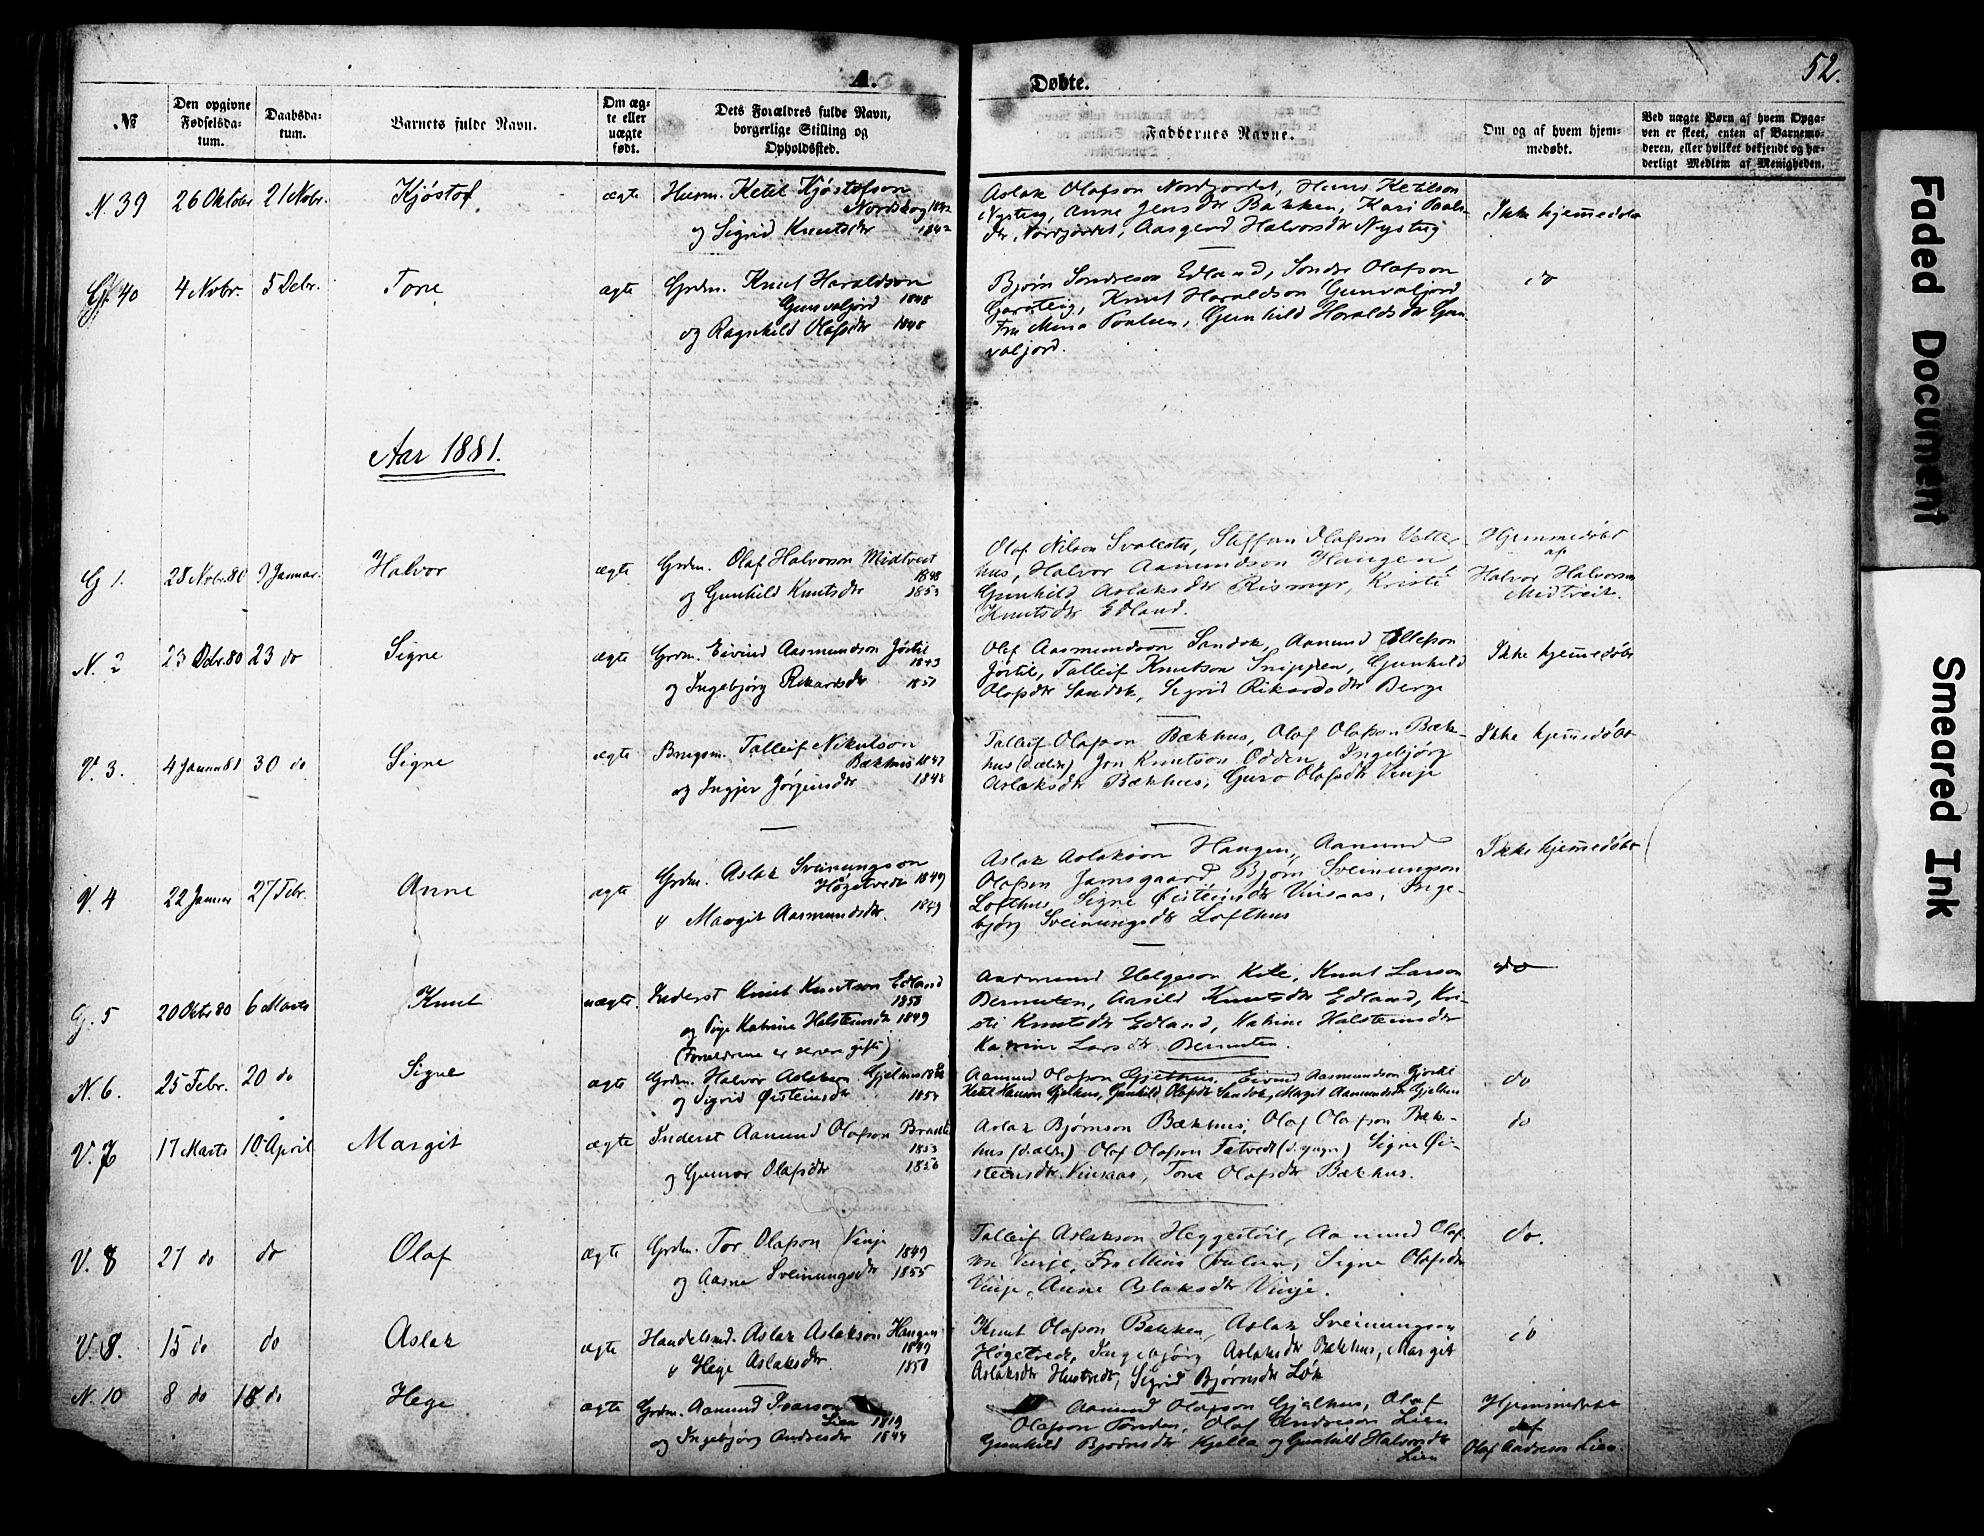 A. Døbte. 52.
№
Den opgivne Fødselsdatum.
Daabsdatum.
Barnets fulde Navn.
Om ægte eller uægte født.
Dets Forældres fulde Navn, borgerlige Stilling og Opholdssted.
Faddernes Navne.
Om og af hvem hjemmedøbt.
Ved uægte Børn af hvem Opgaven er skeet, enten af Barnemoderen, eller hvilket bekjendt og hæderligt Medlem af Menigheden.
N. 39 26 Oktober 21 Nobr. Kjøstof ægte
Husm. Ketil Kjøstofson
Nordskog 1842
og Sigrid Knutsdtr 1842
Aslak Olafson Nordgardet, Hans Ketilson
Nysteig, Anne Jensdtr Bakken, Kari Paals-
dtr Nordgardet, Aasgerd Halvorsdtr Nysteig
Ikke hjemmedøbt
G. 40 4 Nobr. 5 Debr. Tone ægte
Grdm. Knut Haraldson
Gunvaljord 1848
og Ragnhild Olafsdtr 1848
Bjørn Sondreson Edland, Sondre Olafson
Garsteig, Knut Haraldson Gunvaljord
Fru Mina Poulsen, Gunhild Haraldsdtr Gun-
valjord.
do
Aar 1881.
G 1. 28 Nobr. 80 9 Januar. Halvor ægte
Grdm. Olaf Halvorson Midtveit
1848
og Gunhild Knutsdtr 1853
Olaf Nilson Svalestu, Steffen Olafson Vetter-
hus, Halvor Aamundson Haugen
Gunhild Aslaksdtr Rismyr, Kristi
Knutsdtr Edland.
Hjemmedøbt
af
Halvor Halvorson
Midtveit.
N. 2 23 Debr. 80 23 do Signe ægte
Grdm. Eivind Aasmundson Jøstil
1843
og Ingebjørg Rikardsdtr 1851
Olaf Aasmundson Sandok, Aamund Ellefson
Jøstil, Talleif Knutson Snippen, Gunhild
Olafsdtr Sandok, Sigrid Rikardsdtr Berge
Ikke hjemmedøbt
V. 3. 4 Januar 81 30 do Signe ægte
Brugsm. Talleif Nikulson
Bækhus 1847
og Ingjer Jørgensdtr 1848
Talleif Olafson Bækhus, Olaf Olafson Bæk-
hus (d. ældr) Jon Knutson Odden, Ingebjørg
Aslaksdtr Bækhus, Guro Olafsdtr Vinje
Ikke hjemmedøbt
V. 4 22 Januar 27 Febr. Anne ægte
Grdm. Aslak Sveinungson
Høgetvedt 1849
" Margit Aasmundsdtr. 1849
Aslak Aslakson Haugen, Aamund
Olafson Jamsgaard, Bjørn Sveinungson
Lofthus, Signe Øisteinsdtr Vinsaas, Inge-
bjørg Sveinungsdtr Lofthus
Ikke hjemmedøbt
G. 5 20 Oktbr 80 6 Marts Knut uægte
Inderst Knut Knutson Edland
1858
og Pige Katrine Halsteinsdtr 1849
(Forældrene er senere gifte)
Aasmund Helgeson Kile, Knut Larson
Bernuten, Aasild Knutsdtr Edland, Kri-
sti Knutsdtr Edland, Katrine Halsteinsdtr
Katrine Larsdtr Bernuten.
do
N. 6. 25 Febr. 20 do Signe ægte
Grdm. Halvor Aslakson Gjelhus
og Sigrid Øisteinsdtr 1854
Aamund Olafson Gjelhus, Eivind Aasmundson Gjøstil
Ketil Hanson Gjelhus, Gunhild Olafsdtr Sandok, Margit Aamundsdtr Gjelhus
do
V. 7 17 Marts 10 April Margit ægte
Inderst Aamund Olafson
1853
og Gunvor Olafsdtr 1856
Aslak Bjørnson Bækhus, Olaf Olafson Bæk-
hus (d. ældr) Olaf Olafson Tætvedt (d. yngr) Signe Øi-
steinsdtr Vinsaas, Tone Olafsdtr Bækhus.
do
V. 8 27 do do Olaf ægte
Grdm. Tor Olafson Vinje
1849
og Aasne Sveinungsdtr 1855
Talleif Aslakson Heggestøil, Aamund Olaf-
son Vinje, Fru Mina Poulsen, Signe Olafsdtr
Vinje, Anne Aslaksdtr Vinje.
do.
V. 8. 15 do do Aslak ægte
Handelsmd. Aslak Aslakson Haugen
1849
" Hege Aslaksdtr 1850
Knut Olafson Bakken, Aslak Sveinungson
Høgetvedt, Ingebjørg Aslaksdtr Bækhus, Margit
Aslaksdtr Hustvedt, Sigrid Bjørnsdtr Løk
do
N. 10 8 do 18 do Hege ægte
Grdm. Aamund Ivarson
Lien 1819
og Ingebjørg Andresdtr 1844
Aamund Olafson Gjelhus, Olaf
Olafson Tonden, Olaf Andreson Lien
Gunhild Bjørnsdtr Kjella og Gunhild Halvorsdtr
Lien
Hjemmedøbt
af
Olaf Andreson Lien.
Faded Document
Smeared Ink